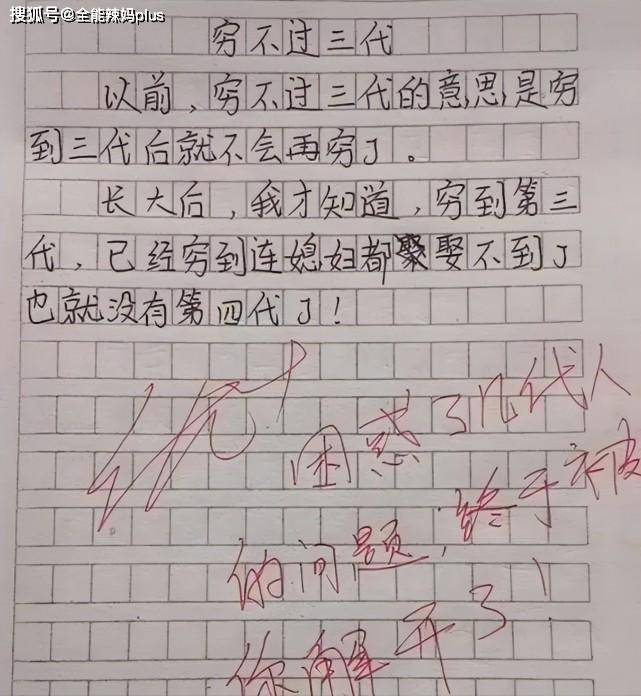 搜狐号@全能辣妈plus
穷不过三代
以前，穷不过三代的意思是穷
到三代后就不会再穷了。
长大后，我才知道，穷到第三
代，已经穷到连媳妇都娶不到了
也就没有第四代了！
优+
困惑了几代人
的问题，终于被
你解开了！